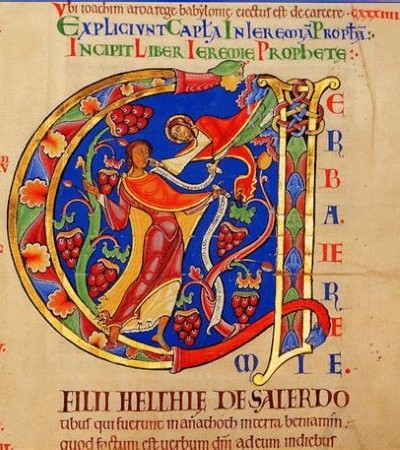 Vbi ioachim a rege babylonie eiectus est de carcere
EXPLICIVNT CAPLA IN IEREMIA PROPHTA:
INCIPIT LIBER IEREMIE PROPHETE:
V
E
R
B
A.
IE
R
E
M I E.
FILII HELCHIE DE SACERDO
tibus qui fuerunt in anathoth in terra beniamin.
quod factum est uerbum dni ad eum in diebus